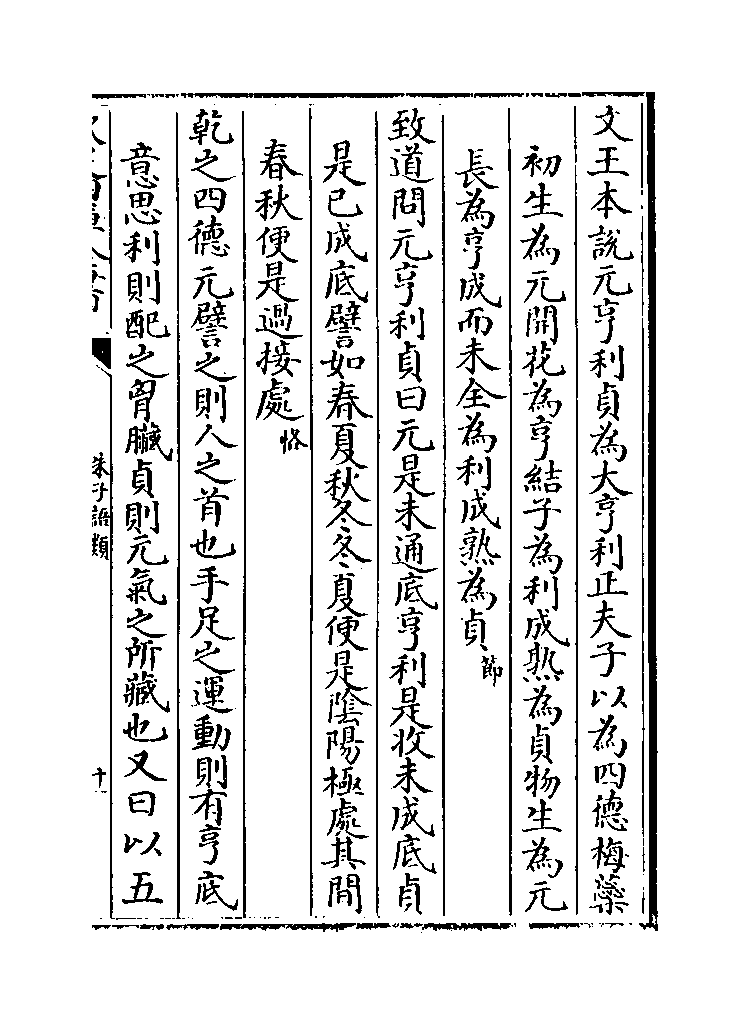 文王本說元亨利貞為大亨利正夫子以為四德梅蘂
初生為元開花為亨結子為利成熟為貞物生為元
長為亨成而未全為利成熟為貞節
致道問元亨利貞曰元是未通底亨利是收未成底貞
是已成底譬如春夏秋冬冬夏便是陰陽極處其間
春秋便是過接處恪
乾之四德元譬之則人之首也手足之運動則有亨底
意思利則配之胷臟貞則元氣之所藏也又曰以五
朱子語類
十